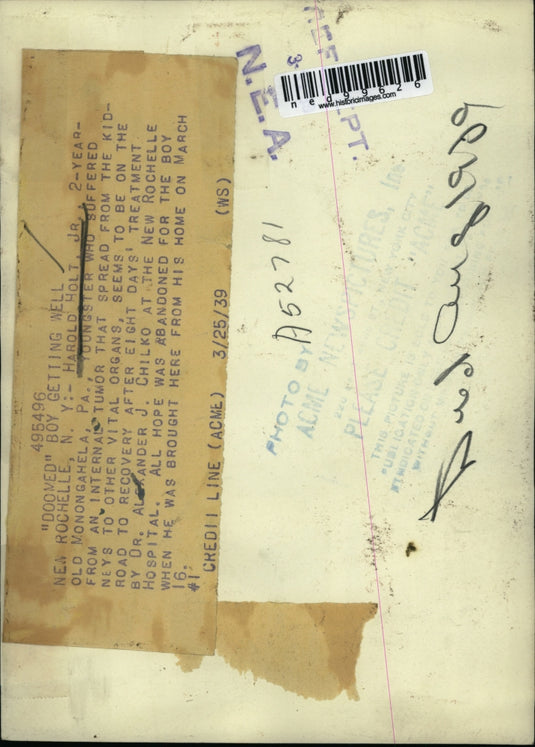 495496
"DOOMED" BOY GETTING WELL
NEW ROCHELLE, N. Y:- HAROLD HOLT JR., 2-YEAR-
OLD MONONGAHELA, PA., YOUNGSTER WHO SUFFERED
FROM AN INTERNAL TUMOR THAT SPREAD FROM THE KID-
NEYS TO OTHER VITAL ORGANS, SEEMS TO BE ON THE
ROAD TO RECOVERY AFTER EIGHT DAYS' TREATMENT
BY DR. ALEXANDER J. CHILKO AT THE NEW ROCHELLE
HOSPITAL. ALL HOPE WAS ABANDONED FOR THE BOY
WHEN HE WAS BROUGHT HERE FROM HIS HOME ON MARCH
16.
#1 CREDIT LINE (ACME) 3/25/39 (WS)
N.E.A.
ned99626
www.historicimages.com
A52781
PHOTO BY
ACME NEWSPICTURES, Inc.
NEW YORK CITY
PLEASE
"ACME"
THIS PICTURE